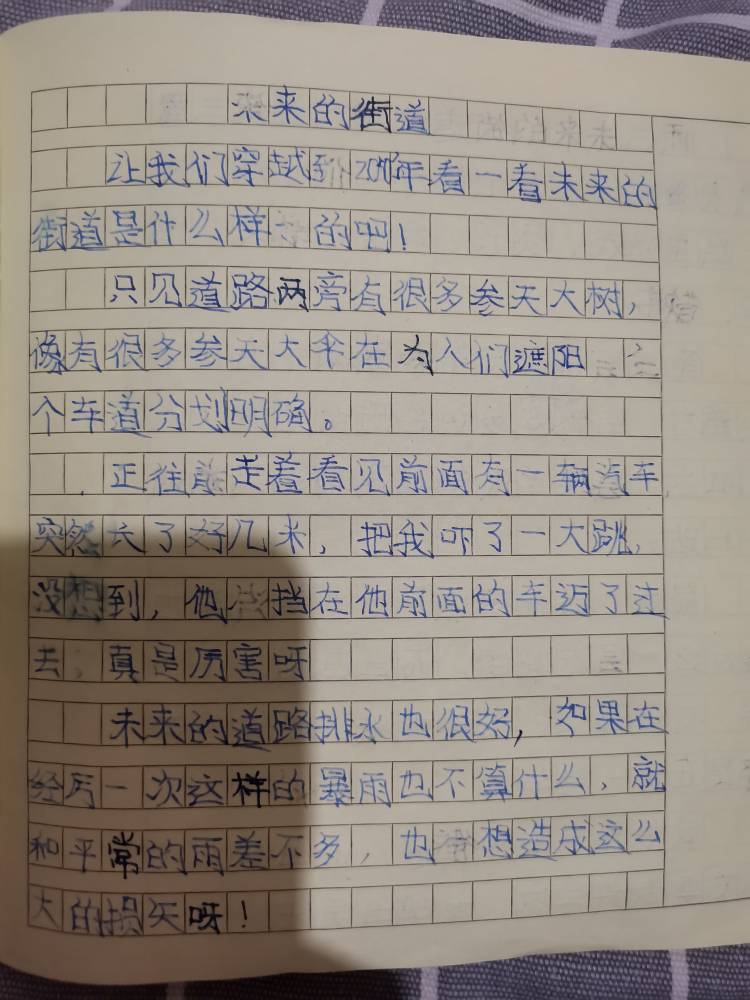 未来的街道
让我们穿越到年看一看未来的
街道是什么样的吧！
只见道路两旁有很多参天大树，
像有很多参天大伞在为人们遮阳
个车道分划明确。
正往前走着看见前面有一辆汽车，
突然长了好几米，把我吓了一大跳，
没想到，他挡在他前面的车迈了过
去，真是厉害呀
未来的道路排水也很好，如果在
经历一次这样的暴雨也不算什么，就
和平常的雨差不多，也想造成这么
大的损失呀！